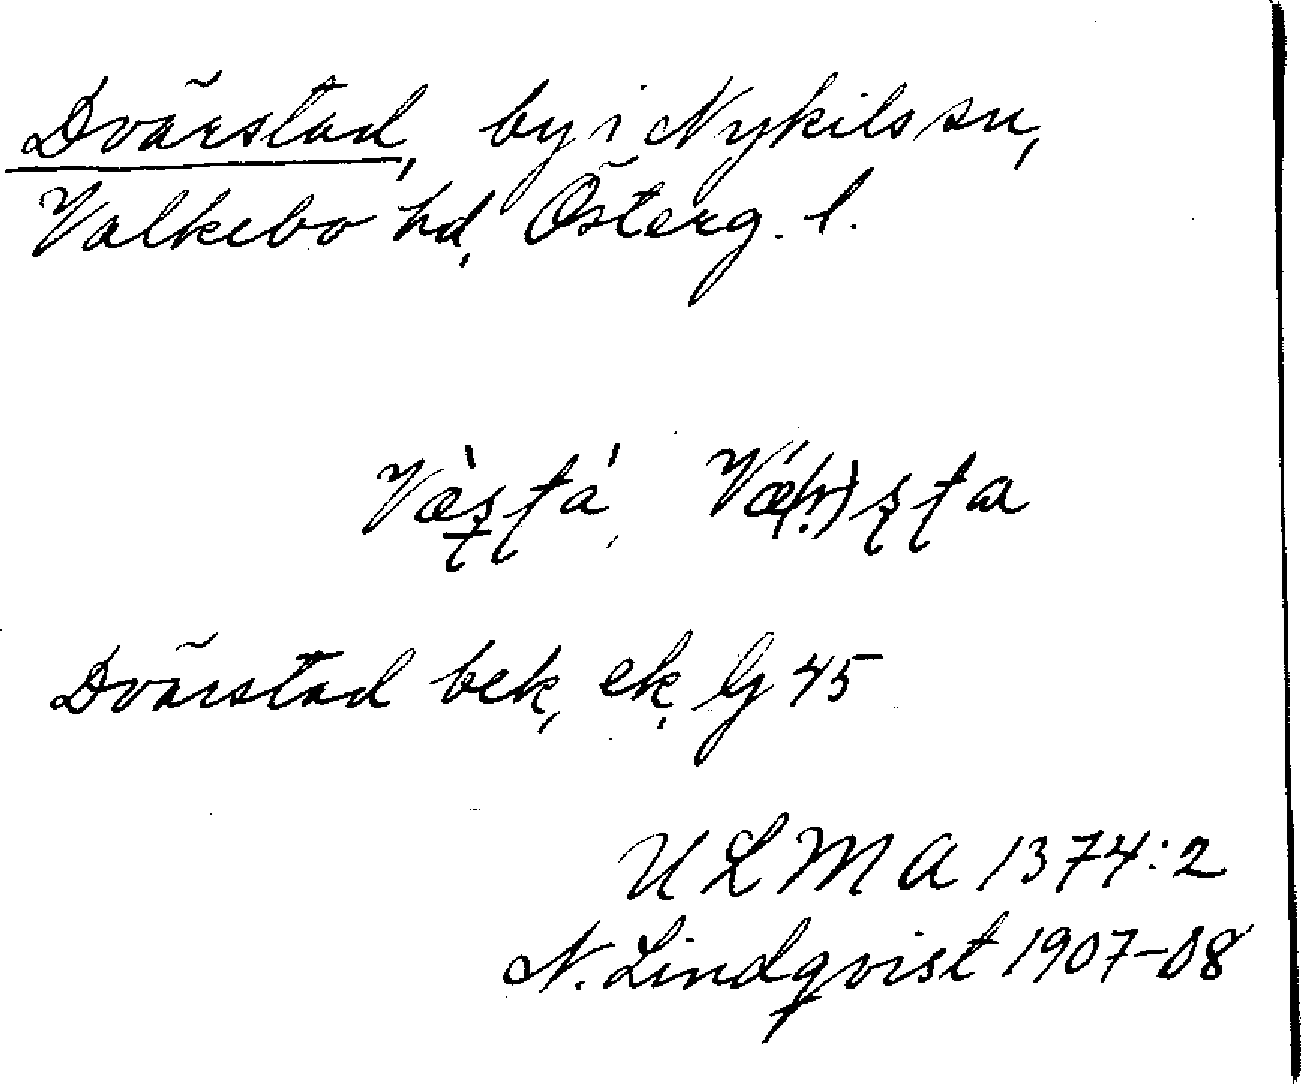 Dvärstad, by i Nykils sn,
Valkebo hd, Österg. l.
Dvärstad bek, ek, lg 45
ULMA 1374:2
N. Lindqvist 1907-08